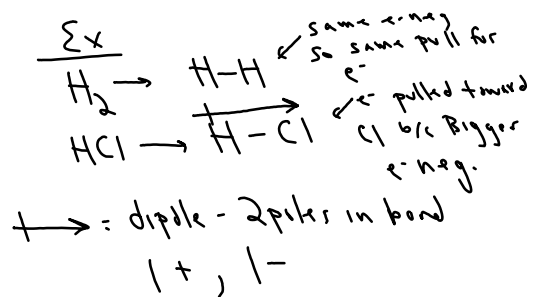 Ex
H2 → H-H same e-neg so same pull for e-
HCl → H-Cl e- pulled toward Cl b/c Bigger e-neg.
= dipole - 2 poles in bond
1+, 1-